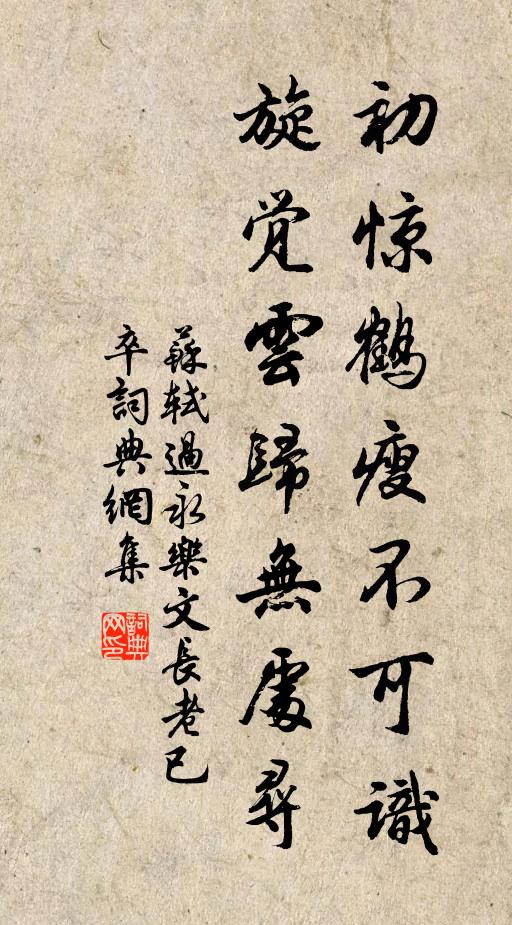 初惊鹤瘦不可識
旋觉雲歸無處尋
蘇轼過永樂文長老已
卒詞典網集
詞典
网印